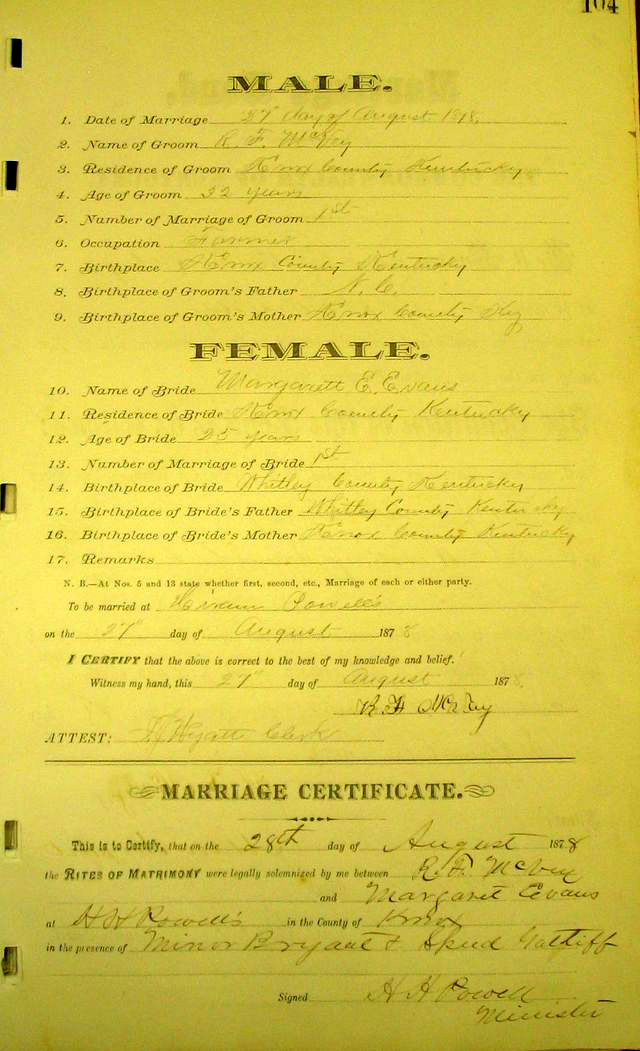 104
MALE.
1. Date of Marriage 27" day of August 1878.
2. Name of Groom R. F. McVey
3. Residence of Groom Knox County Kentucky
4. Age of Groom 32 years
5. Number of Marriage of Groom 1st
6. Occupation Farmer
7. Birthplace Knox County Kentucky
8. Birthplace of Groom's Father N. C.
9. Birthplace of Groom's Mother Knox County Ky
FEMALE.
10. Name of Bride Margarett E. Evans
11. Residence of Bride Knox County Kentucky
12. Age of Bride 25 years
13. Number of Marriage of Bride 1st
14. Birthplace of Bride Whitley County Kentucky
15. Birthplace of Bride's Father Whitley County Kentucky
16. Birthplace of Bride's Mother Knox County Kentucky
17. Remarks
N. B.—At Nos. 5 and 13 state whether first, second, etc., Marriage of each or either party.
To be married at Hiram Powell's
on the 27" day of August 1878
I CERTIFY that the above is correct to the best of my knowledge and belief.
Witness my hand, this 27" day of August 1878.
McVey
ATTEST: Wyatt Clerk
MARRIAGE CERTIFICATE.
This is to Certify, that on the 28th day of August 1878
the RITES OF MATRIMONY were legally solemnized by me between R. F. McVey
and Margaret Evans
at H H Powell's in the County of Knox
in the presence of Minor Bryant & Spud Gatliff
Signed H H Powell
Minister